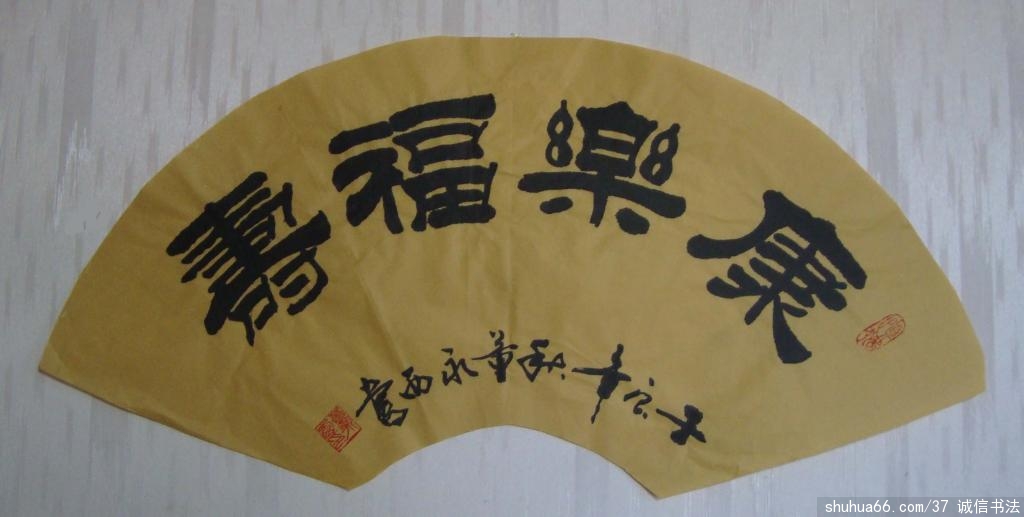 康樂福壽
年秋董永西
shuhua66.com/37 诚信书法